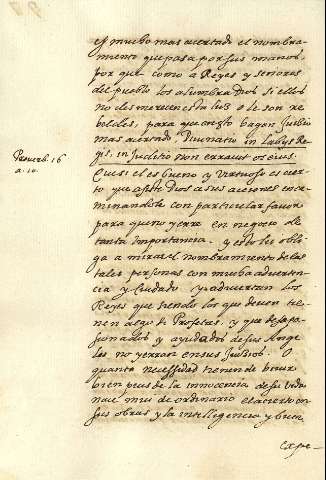 es mucho mas acertado el nombra-
miento que pasa por sus manos.
por que como a Reyes y señores
del pueblo los alumbra Dios si ellos
no desmerecen esta luz o le son re
beldes, para que en esto hagan Juicio
mas acertado. Divinatio in Labijs Re
gis, in Judicio non erravit os eius.
Proverb. 16
a. 10.
Que si el es bueno y Virtuoso es cier
to que assiste Dios a sus acciones enca
minandole con particular favor
para que no yerre en negocio de
tanta Importancia. y esto les obli
ga a mirar el nombramiento de las
tales personas con mucha advertan
cia y Cuidado y adviertan los
Reyes que siendo los que deven tie
nen algo de Profetas, y que desapa
sionados y ayudados de sus Ange
les no yerran en sus Juicios. O
quanta necessidad tienen de
bien pues de la innocencia de su Vida
nace de ordinario el acierto en
sus obras y la inteligencia y buen